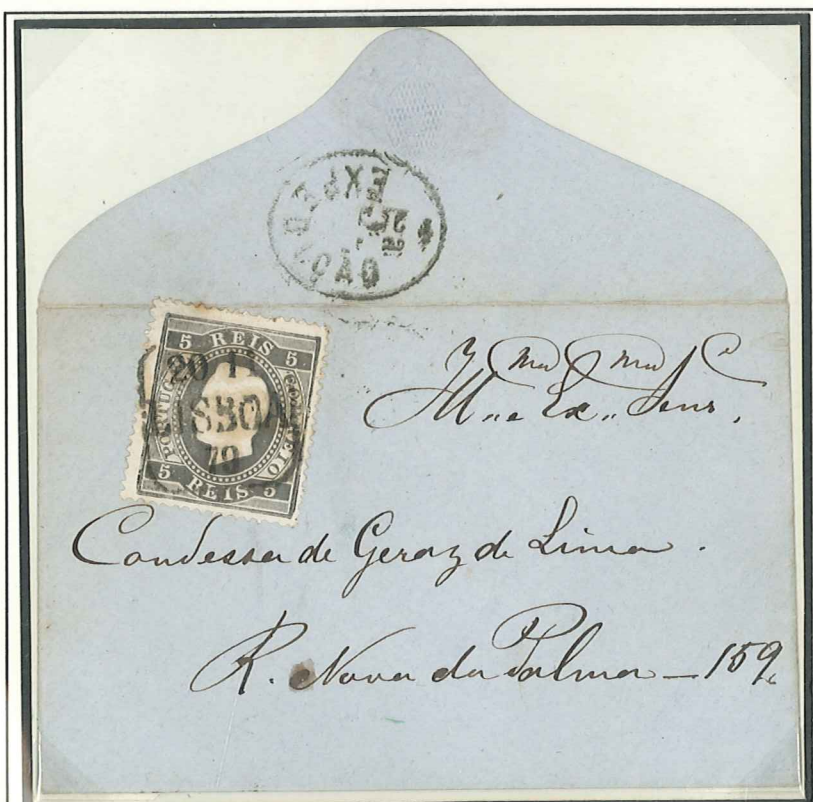 EXPEDIÇÃO
5 REIS 5
PORTUGAL
CORREIO
20
LISBOA
79
5 REIS 5
Illma Exma Senra
Condessa de Geraz de Lima.
R. Nova da Palma — 159